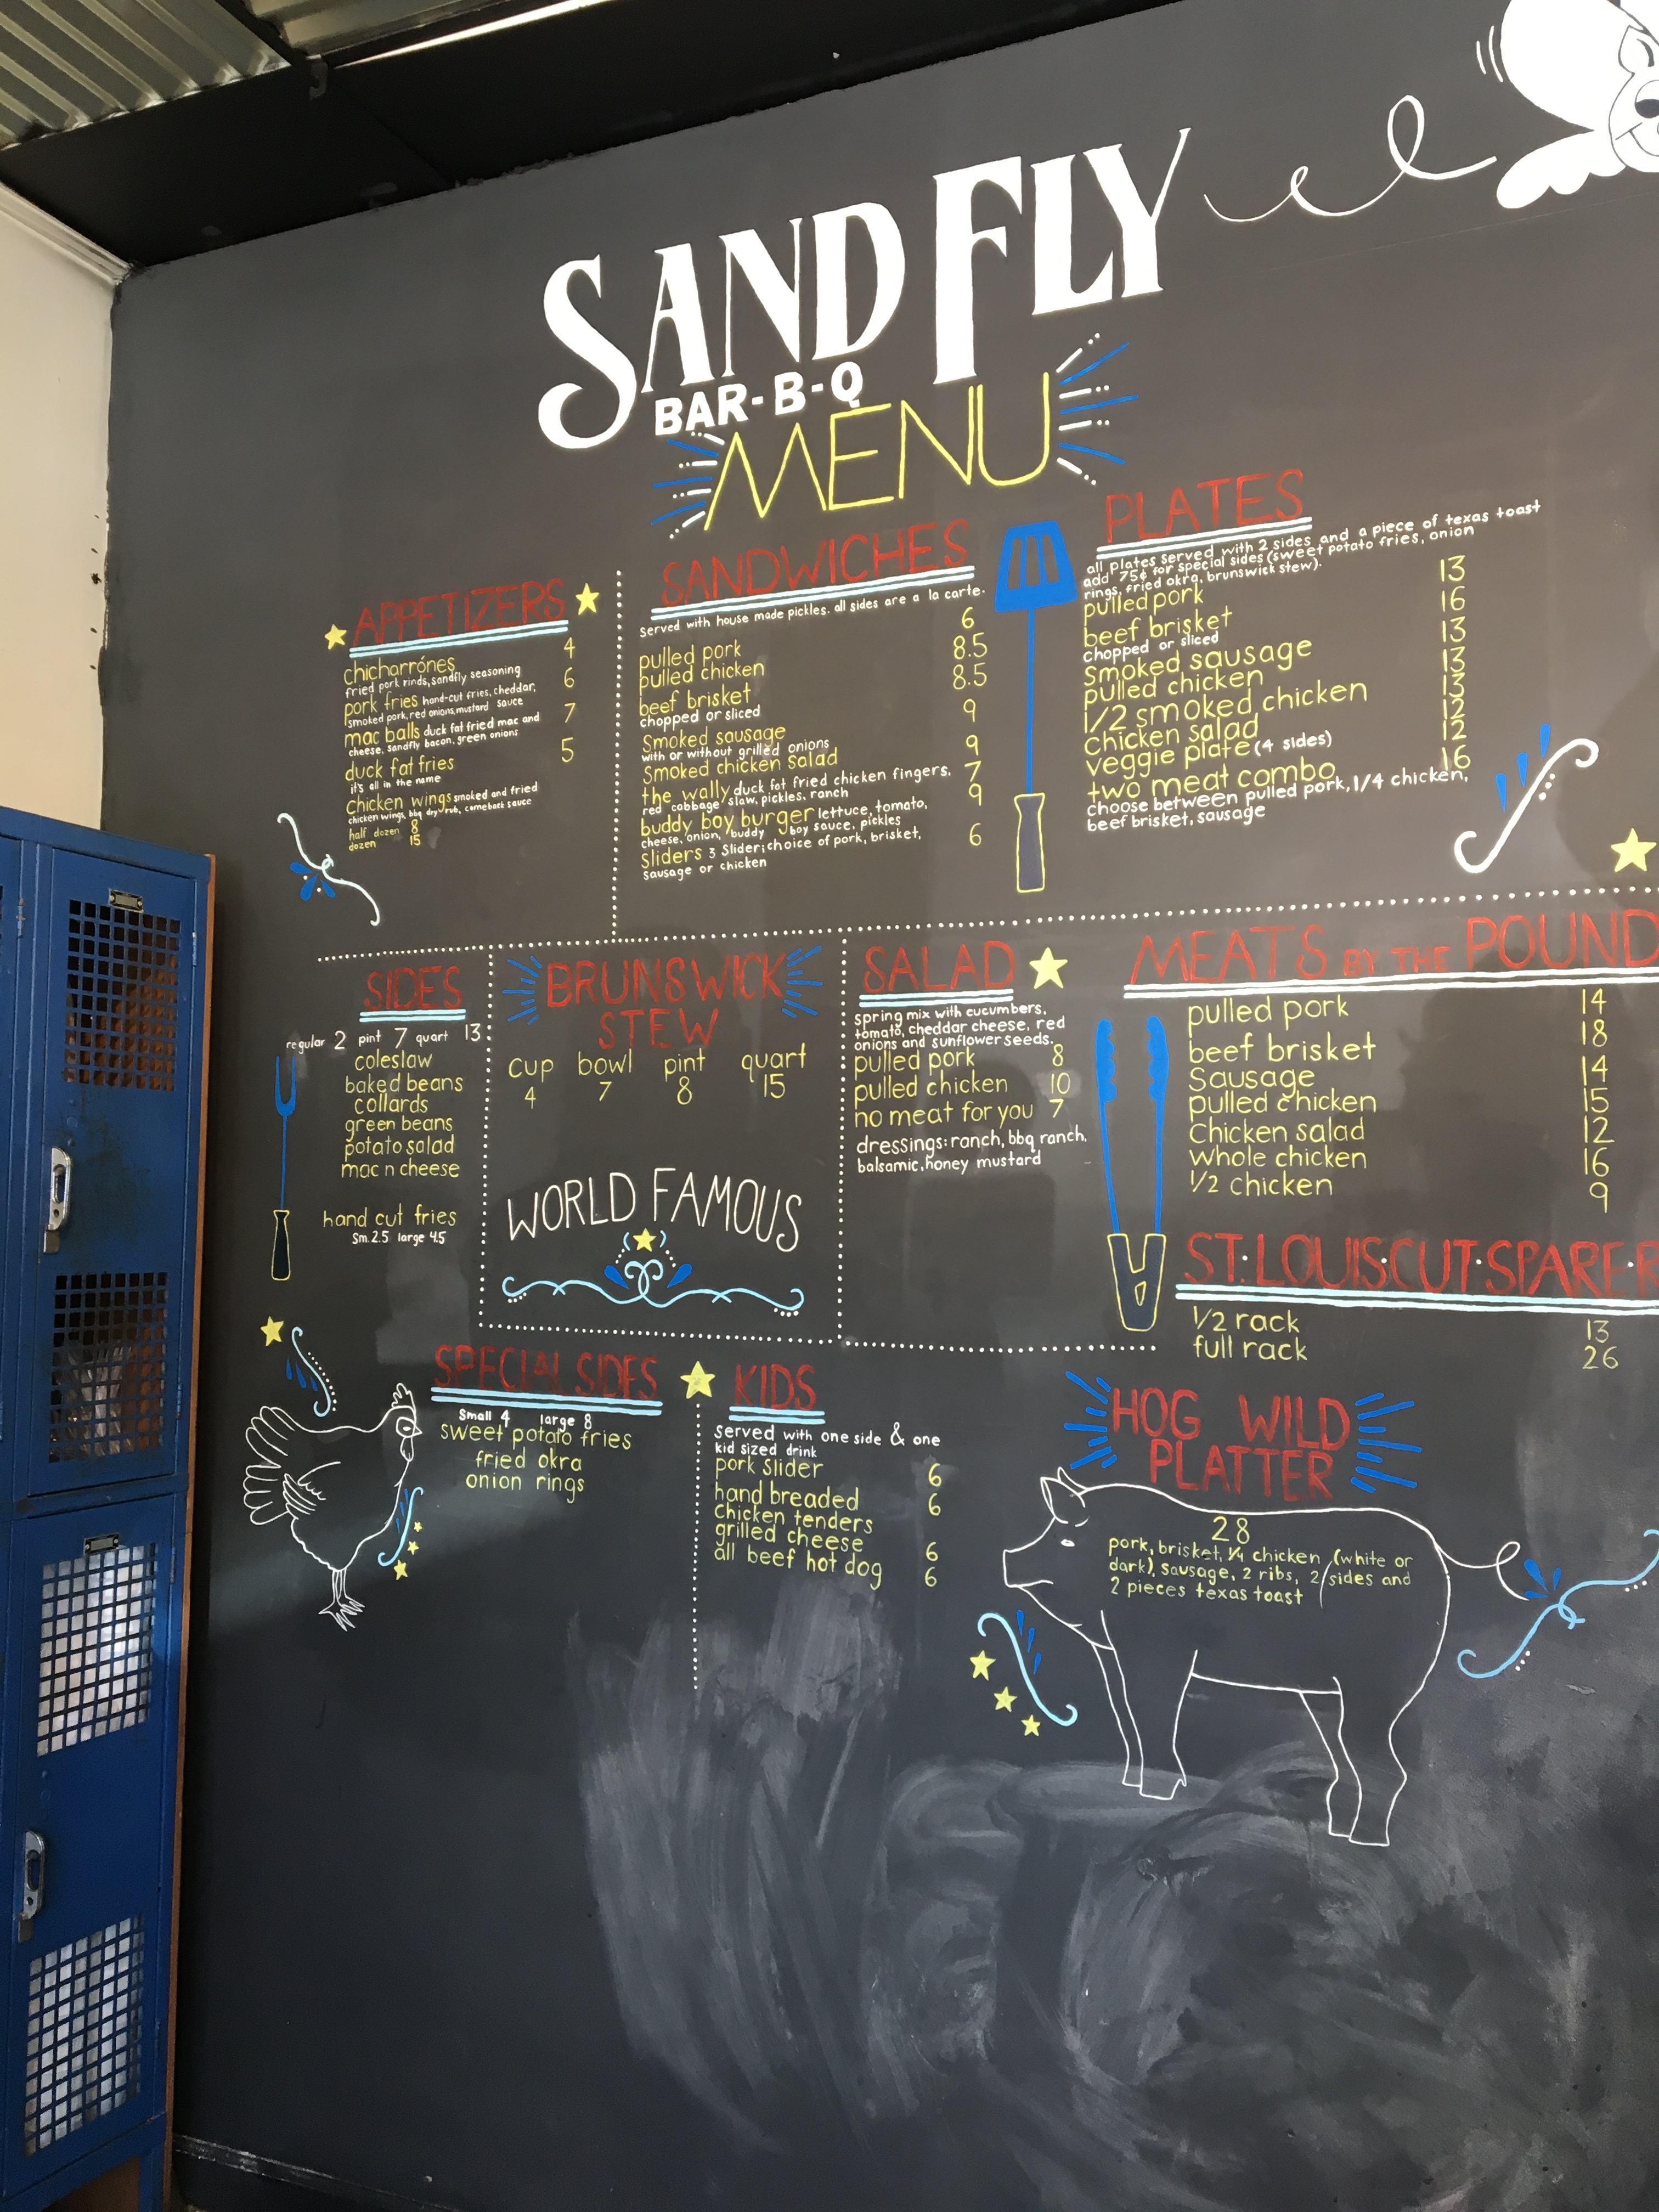 SAND FLY
BAR-B-Q
MENU
APPETIZERS
chicharrónes 4
fried pork rinds, sandfly seasoning
pork fries hand-cut fries, cheddar, 6
smoked pork, red onions, mustard sauce
mac balls duck fat fried mac and 7
cheese, sandfly bacon, green onions
duck fat fries 5
it's all in the name
chicken wings smoked and fried
chicken wings, bbq dry rub, comeback sauce
half dozen 8
dozen 15
SANDWICHES
served with house made pickles. all sides are a la carte.
pulled pork 6
pulled chicken 8.5
beef brisket 8.5
chopped or sliced
Smoked sausage 9
with or without grilled onions
Smoked chicken salad 9
the wally duck fat fried chicken fingers, 7
red cabbage slaw, pickles, ranch
buddy boy burger lettuce, tomato, 9
cheese, onion, buddy boy sauce, pickles
Sliders 3 Slider; choice of pork, brisket, 6
sausage or chicken
PLATES
all plates served with 2 sides and a piece of texas toast
add 75¢ for special sides (sweet potato fries, onion
rings, fried okra, brunswick stew).
pulled pork 13
beef brisket 16
chopped or sliced
Smoked sausage 13
pulled chicken 13
1/2 smoked chicken 13
chicken salad 12
veggie plate (4 sides) 12
two meat combo 16
choose between pulled pork, 1/4 chicken,
beef brisket, sausage
SIDES
regular 2 pint 7 quart 13
coleslaw
baked beans
collards
green beans
potato salad
mac n cheese
hand cut fries
Sm. 2.5 large 4.5
BRUNSWICK
STEW
cup bowl pint quart
4 7 8 15
WORLD FAMOUS
SALAD
spring mix with cucumbers,
tomato, cheddar cheese, red
onions and sunflower seeds.
pulled pork 8
pulled chicken 10
no meat for you 7
dressings: ranch, bbq ranch,
balsamic, honey mustard
MEATS BY THE POUND
pulled pork 14
beef brisket 18
Sausage 14
pulled chicken 15
Chicken salad 12
whole chicken 16
1/2 chicken 9
ST·LOUIS·CUT·SPARE·R
1/2 rack 13
full rack 26
SPECIAL SIDES
Small 4 large 8
sweet potato fries
fried okra
onion rings
KIDS
served with one side & one
kid sized drink
pork slider 6
hand breaded 6
Chicken tenders
grilled cheese 6
all beef hot dog 6
HOG WILD
PLATTER
28
pork, brisket, 1/4 chicken (white or
dark), sausage, 2 ribs, 2 sides and
2 pieces texas toast